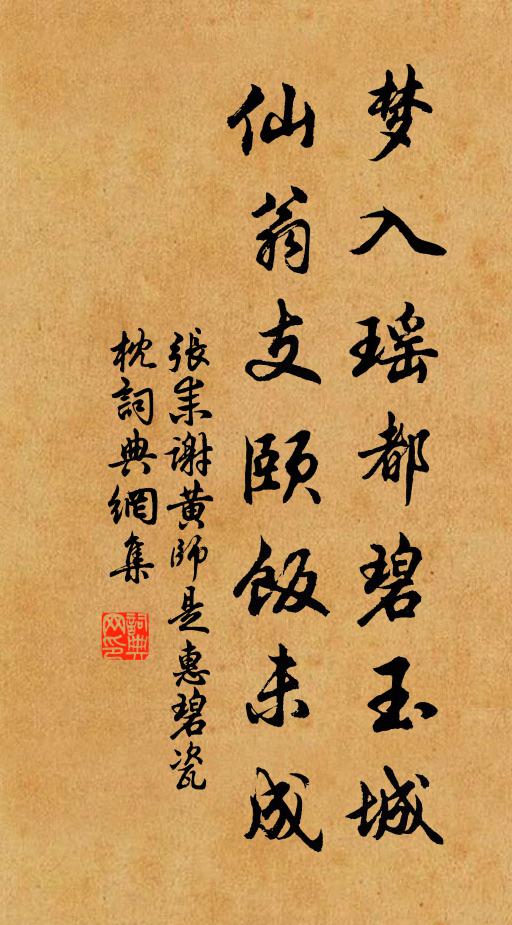 梦入瑶都碧玉城
仙翁支颐饭未成
張耒谢黄师是惠碧瓷
枕詞典網集
詞典
网印